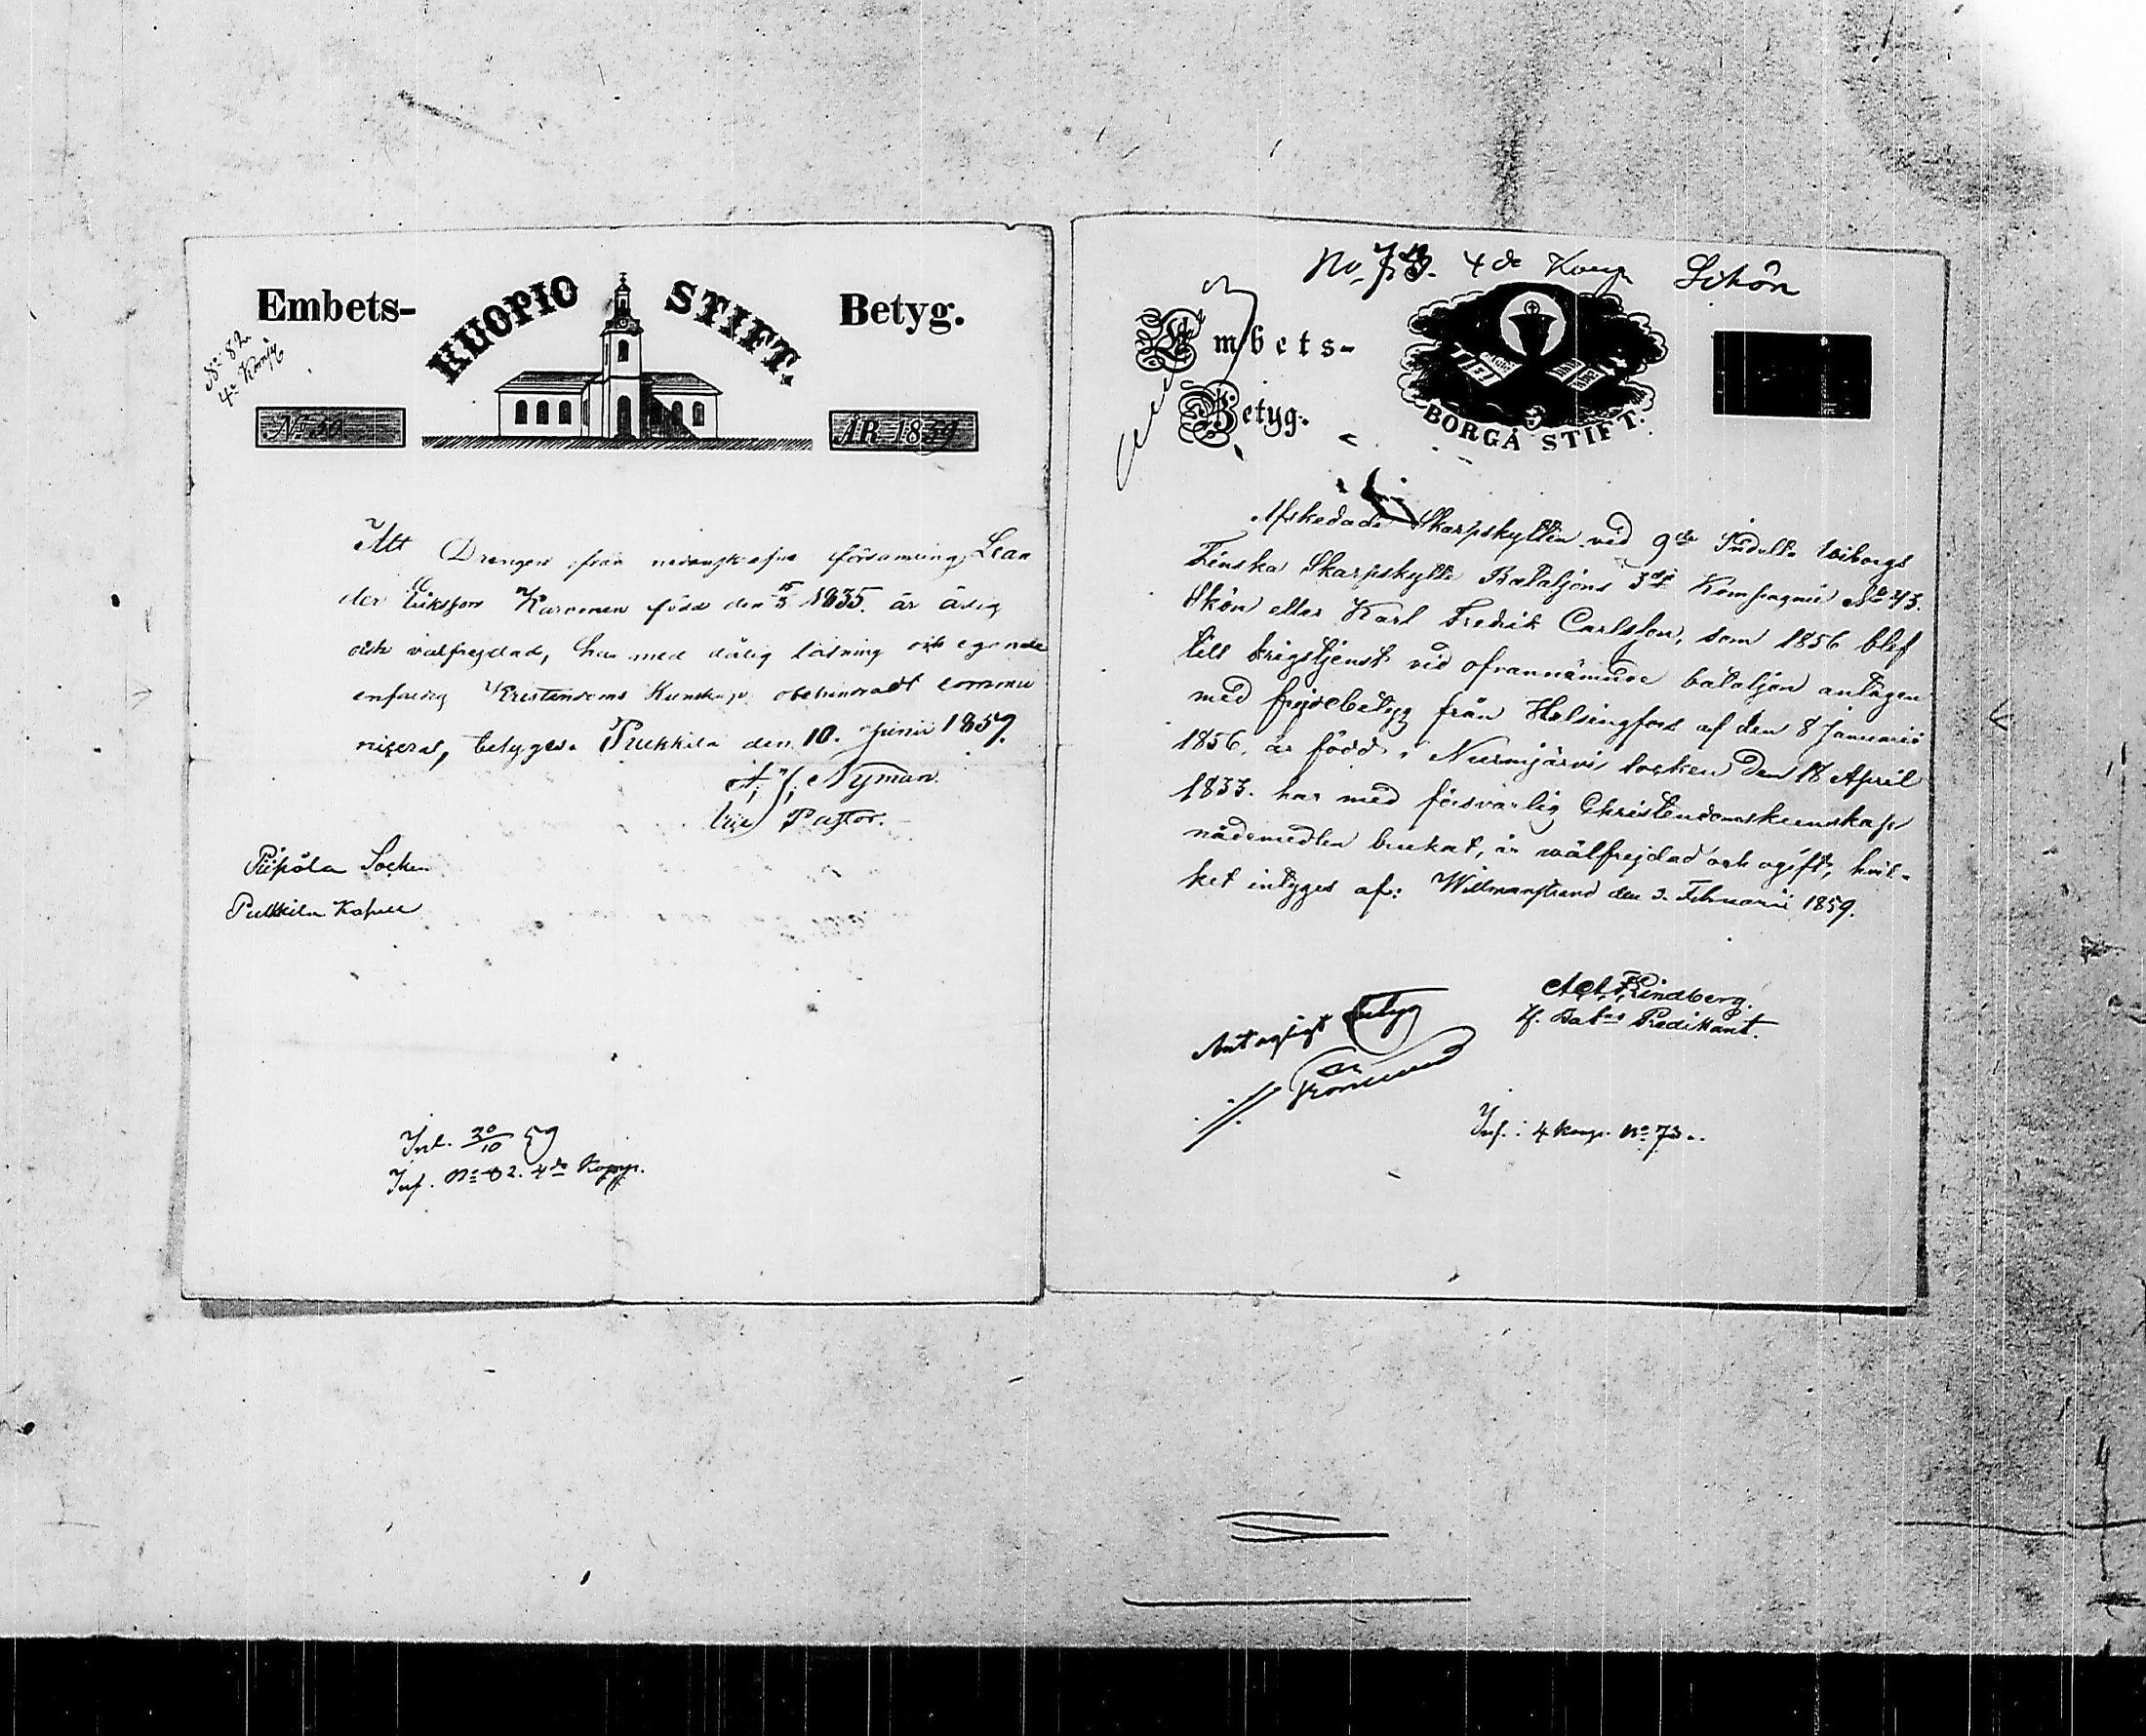 Embets-
KUOPIO STIFT.
Betyg.
No 82
4de Komp
No 50
ÅR 1859
Att Drengen ifrån församling Lean
der Eriksson Karvonen född den 1835. är ärlig
och välfrejdad, har med dålig läsning och
enfaldig Kristendoms Kunskap obehindradt commu
nicerat, betygar Pulkkila den 10. Junii 1859.
Nyman.
Vice Pastor.
Piipola Socken
Pulkkila Kapell
Inl. 30/10 59
Inf. No 82. 4de Komp.
No 73. 4de Komp Schön
Embets-
Betyg.
BORGÅ STIFT.
Afskedade Skarpskytten vid 9de Indelta Wiborgs
Finska Skarpskytte Bataljons 3dje Kompagnie No 43.
Skön eller Karl Fredrik Carlsson, som 1856 blef
till krigstjenst vid ofvannämnde bataljon antagen
med frejdebetyg från Helsingfors af den 8 Januarii
1856, är född i Nurmijärvi socken den 18 April
1833. har med försvarlig Christendomskunskap
nådemedlen brukat, är wälfrejdad och ogift, hvil-
ket intygas af: Willmanstrand den 2. Februarii 1859.
Lindberg.
Predikant.
Antagligt betyg
Inf. 4 Komp. No 73.